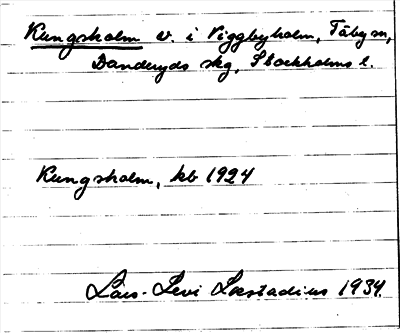 Kungsholm v. i Viggbyholm, Täby sn,
Danderyds skg, Stockholms l.
Kungsholm, kb 1924
Lars-Levi Læstadius 1934.